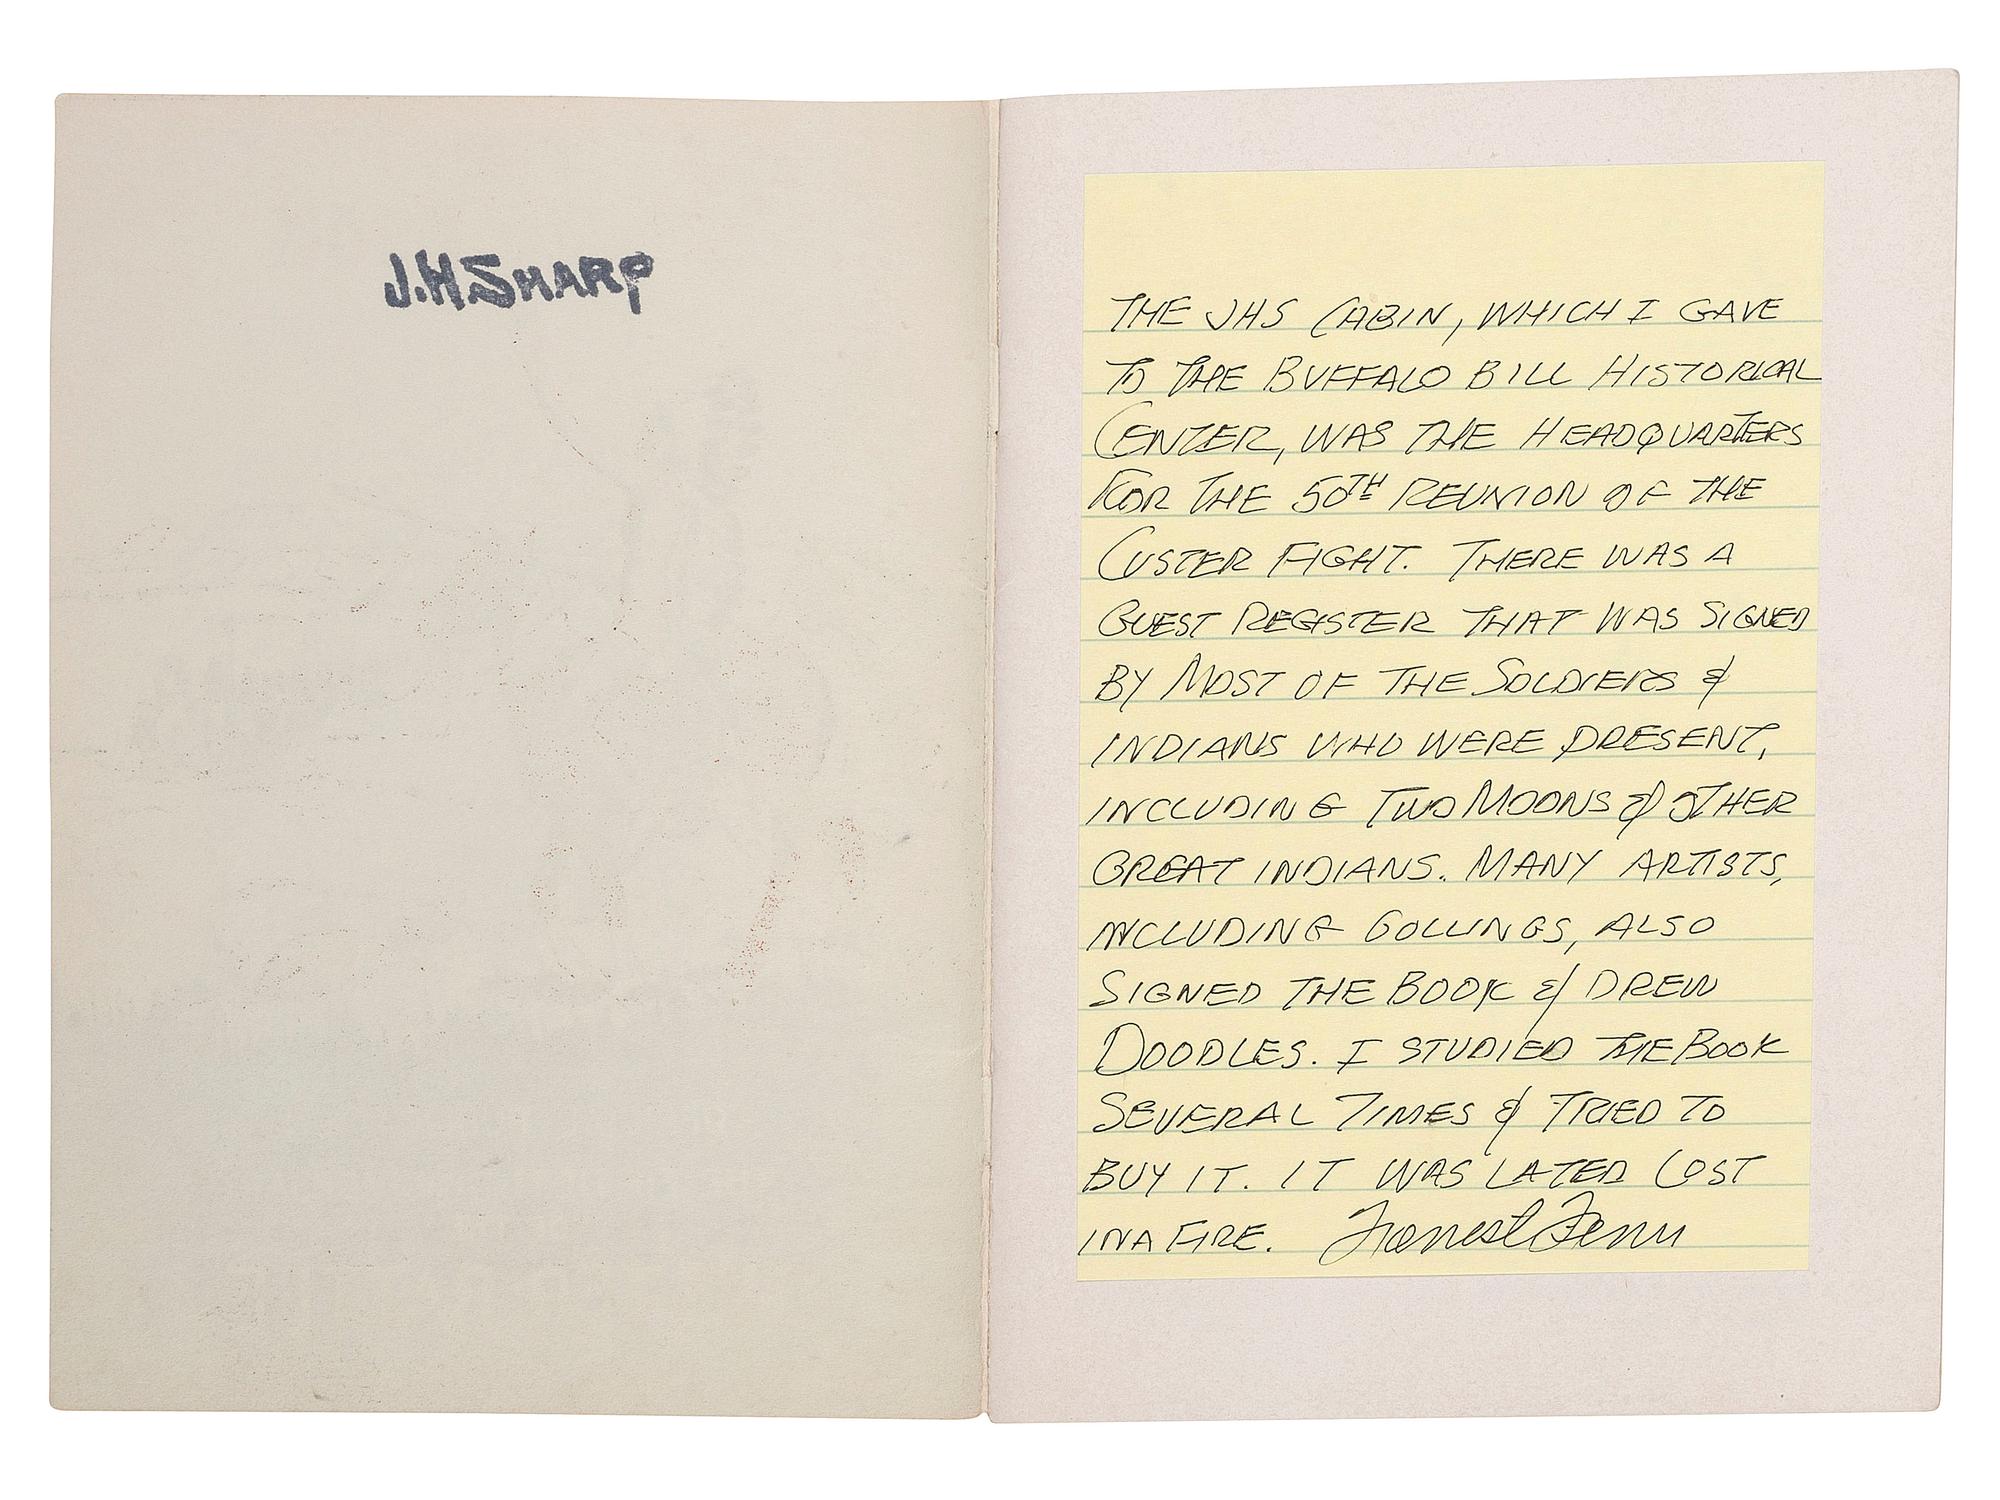 J.H.SHARP
THE JHS CABIN, WHICH I GAVE
TO THE BUFFALO BILL HISTORICAL
CENTER, WAS THE HEADQUARTERS
FOR THE 50TH REUNION OF THE
CUSTER FIGHT. THERE WAS A
GUEST REGISTER THAT WAS SIGNED
BY MOST OF THE SOLDIERS &
INDIANS WHO WERE PRESENT,
INCLUDING TWO MOONS & OTHER
GREAT INDIANS. MANY ARTISTS,
INCLUDING GOLLINGS, ALSO
SIGNED THE BOOK & DREW
DOODLES. I STUDIED THE BOOK
SEVERAL TIMES & TRIED TO
BUY IT. IT WAS LATER LOST
IN A FIRE. Forrest Fenn